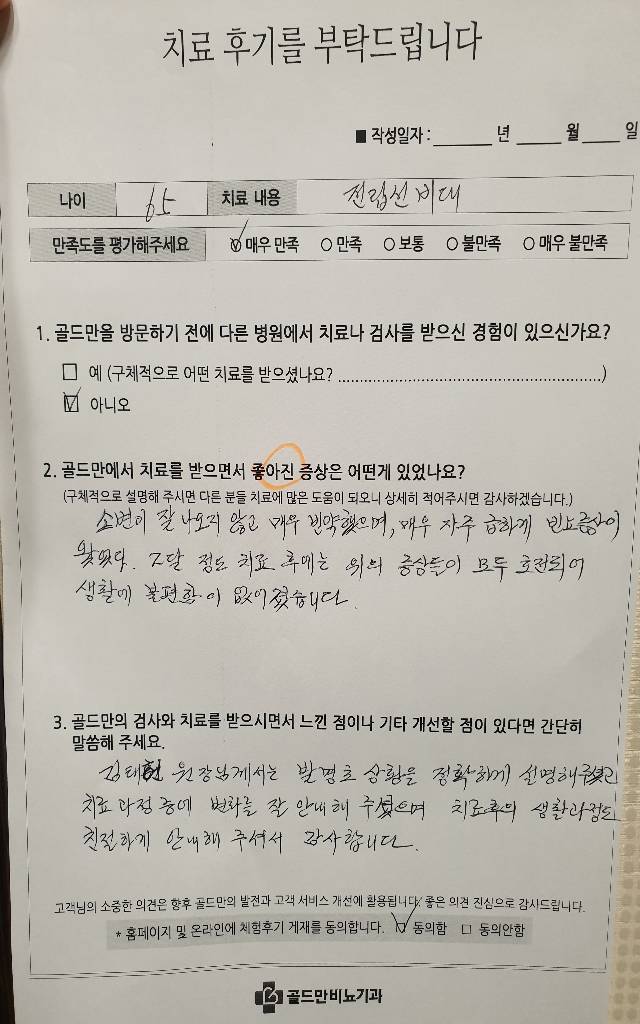 치료 후기를 부탁드립니다
■ 작성일자 : ______ 년 ______ 월 ______ 일
나이 65 치료 내용 전립선 비대
만족도를 평가해주세요 ○ 매우 만족 ○ 만족 ○ 보통 ○ 불만족 ○ 매우 불만족
1. 골드만을 방문하기 전에 다른 병원에서 치료나 검사를 받으신 경험이 있으신가요?
□ 예 (구체적으로 어떤 치료를 받으셨나요? ..........................................................)
☑ 아니오
2. 골드만에서 치료를 받으면서 좋아진 증상은 어떤게 있었나요?
(구체적으로 설명해 주시면 다른 분들 치료에 많은 도움이 되오니 상세히 적어주시면 감사하겠습니다.)
소변이 잘 나오지 않고 매우 빈약했으며, 매우 자주 급하게 빈뇨증상이
왔었다. 2달 정도 치료 후에는 위의 증상들이 모두 호전되어
생활에 불편함이 없어졌습니다.
3. 골드만의 검사와 치료를 받으시면서 느낀 점이나 기타 개선할 점이 있다면 간단히
말씀해 주세요.
김태헌 원장님께서는 발병초 상황을 정확하게 설명해주셨고
치료 과정 중에 변화를 잘 안내해 주셨으며 치료후의 생활과정도
친절하게 안내해 주셔서 감사합니다.
고객님의 소중한 의견은 향후 골드만의 발전과 고객 서비스 개선에 활용됩니다. 좋은 의견 진심으로 감사드립니다.
* 홈페이지 및 온라인에 체험후기 게재를 동의합니다. ☑ 동의함 □ 동의안함
골드만비뇨기과